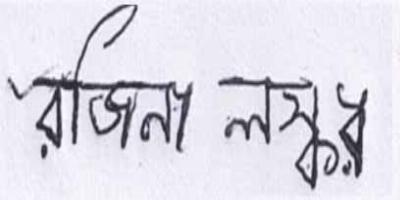 রজিনা লস্কর